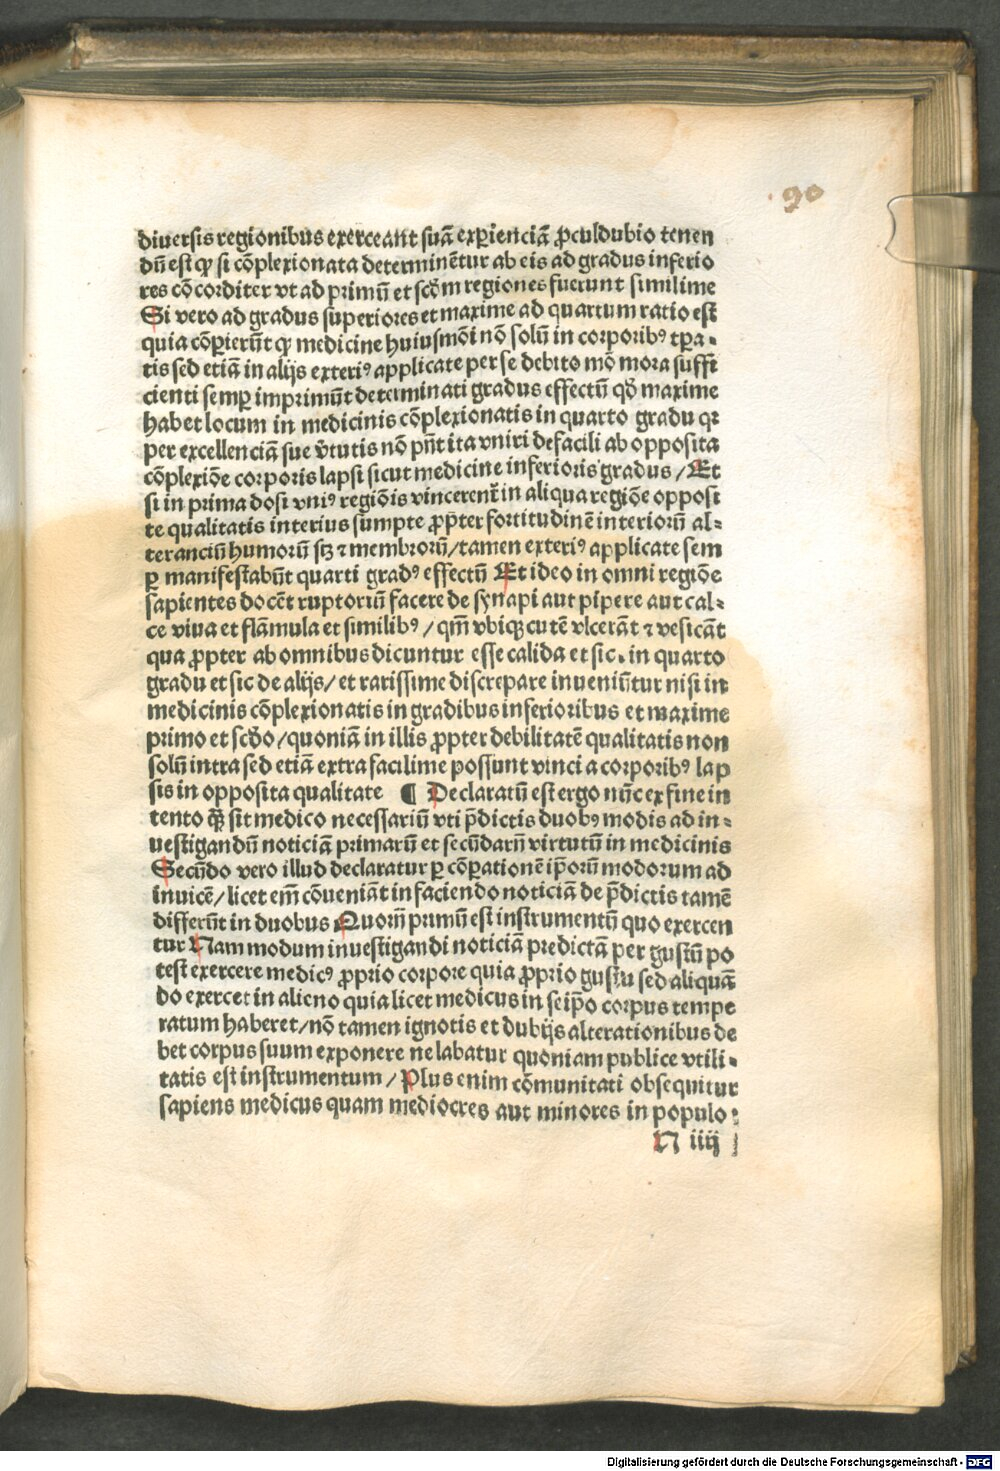 90
diuersis regionibus exerceant suā exꝑienciā ꝓculdubio tenen
dū est ꝙ si cōplexionata determinētur ab eis ad gradus inferio
res cōcorditer vt ad primū et scd̄m regiones fuerunt similime
Si vero ad gradus superiores et maxime ad quartum ratio est
quia cōꝑierūt ꝙ medicine huiusmōi nō solū in corporibꝰ tꝑa-
tis sed etiā in alijs exteriꝰ applicate per se debito mō mora suffi
cienti semꝑ imprimūt determinati gradus effectū qd̄ maxime
habet locum in medicinis cōplexionatis in quarto gradu qꝛ
per excellenciā sue v̄tutis nō pn̄t ita vniri defacili ab opposita
cōplexiōe corporis lapsi sicut medicine inferioris gradus / Et
si in prima dosi vniꝰ regiōis vincerent̄ in aliqua regiōe opposi
te qualitatis interius sumpte ꝓpter fortitudinē interiorū al-
teranciū humorū sꝫ ⁊ membrorū / tamen exteriꝰ applicate sem
ꝑ manifestabūt quarti gradꝰ effectū Et ideo in omni regiōe
sapientes docēt ruptoriū facere de synapi aut pipere aut cal-
ce viua et flāmula et similibꝰ / qm̄ vbiqꝫ cutē vlcerāt ⁊ vesicāt
qua ꝓpter ab omnibus dicuntur esse calida et sic. in quarto
gradu et sic de alijs / et rarissime discrepare inueniūtur nisi in
medicinis cōplexionatis in gradibus inferioribus et maxime
primo et scd̄o / quoniā in illis ꝓpter debilitatē qualitatis non
solū intra sed etiā extra facilime possunt vinci a corporibꝰ lap
sis in opposita qualitate ¶ Declaratū est ergo nūc ex fine in
tento qꝫ sit medico necessariū vti p̄dictis duobꝰ modis ad in-
uestigandū noticiā primarū et secūdarū virtutū in medicinis
Secūdo vero illud declaratur ꝑ cōꝑationē ip̄orū modorum ad
inuicē / licet em̄ cōueniāt in faciendo noticiā de p̄dictis tamē
differūt in duobus Quorū primū est instrumentū quo exercen
tur Nam modum inuestigandi noticiā predictā per gustū po
test exercere medicꝰ ꝓprio corpore quia ꝓprio gustu sed aliquā
do exercet in alieno quia licet medicus in seip̄o corpus tempe
ratum haberet / nō tamen ignotis et dubijs alterationibus de
bet corpus suum exponere ne labatur quoniam publice vtili-
tatis est instrumentum / Plus enim cōmunitati obsequitur
sapiens medicus quam mediocres aut minores in populo:
N iiij
Digitalisierung gefördert durch die Deutsche Forschungsgemeinschaft - DFG